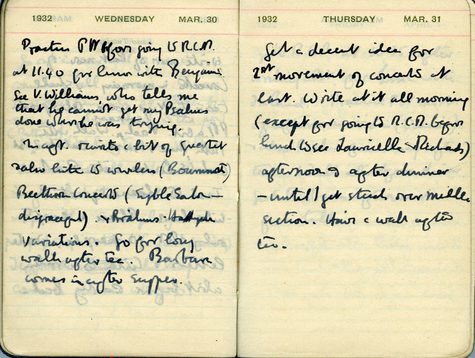 1932 WEDNESDAY MAR. 30
Practise before going to R.C.M.
at 11.40 for with Benjamin.
See V. Williams, who tells me
that he cannot get my Psalms
done where he was trying.
In aft. rewrite a bit of quartet
listen to wireless (Bournemouth)
Beethoven Concerto (Sybil Eaton –
disgraceful) & Brahms–Haydn
Variations. Go for long
walk after tea. Barbara
comes in after supper.
1932 THURSDAY MAR. 31
Get a decent idea for
2nd movement of concerto at
last. Write at it all morning
(except for going to R.C.M. before
lunch to see Richards)
afternoon & after dinner
– until I get stuck over middle
section. Have a walk after
tea.